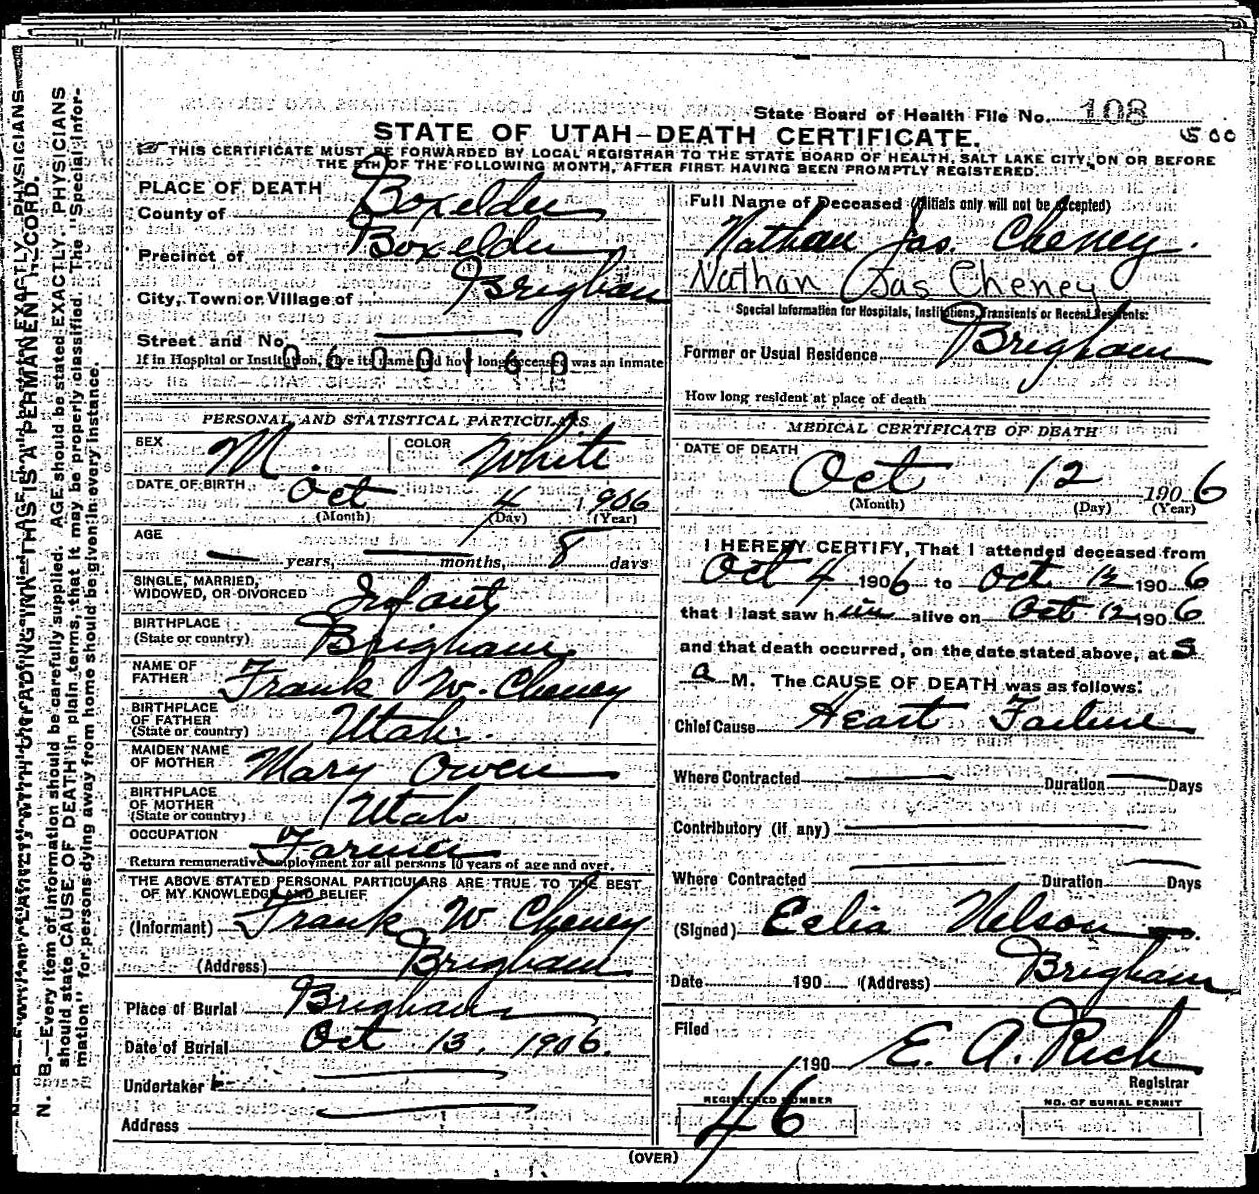 State Board of Health File No. 108
STATE OF UTAH—DEATH CERTIFICATE.
500
THIS CERTIFICATE MUST BE FORWARDED BY LOCAL REGISTRAR TO THE STATE BOARD OF HEALTH, SALT LAKE CITY, ON OR BEFORE
THE 5TH OF THE FOLLOWING MONTH, AFTER FIRST HAVING BEEN PROMPTLY REGISTERED.
PLACE OF DEATH
County of Boxelder
Precinct of Boxelder
City, Town or Village of Brigham
Street and No.
If in Hospital or Institution, give its name and how long deceased was an inmate
0600160
PERSONAL AND STATISTICAL PARTICULARS
SEX M. COLOR White
DATE OF BIRTH Oct 4 1906
(Month) (Day) (Year)
AGE — years, — months, 8 days
SINGLE, MARRIED,
WIDOWED, OR DIVORCED Infant
BIRTHPLACE
(State or country) Brigham
NAME OF
FATHER Frank W. Cheney
BIRTHPLACE
OF FATHER
(State or country) Utah.
MAIDEN NAME
OF MOTHER Mary Owen
BIRTHPLACE
OF MOTHER
(State or country) Utah
OCCUPATION Farmer
Return remunerative employment for all persons 10 years of age and over.
THE ABOVE STATED PERSONAL PARTICULARS ARE TRUE TO THE BEST
OF MY KNOWLEDGE AND BELIEF
(Informant) Frank W Cheney
(Address) Brigham
Place of Burial Brigham
Date of Burial Oct 13. 1906.
Undertaker
Address
Full Name of Deceased (Initials only will not be accepted)
Nathan Jas. Cheney.
Nathan Jas Cheney
Special Information for Hospitals, Institutions, Transients or Recent Residents:
Former or Usual Residence Brigham
How long resident at place of death
MEDICAL CERTIFICATE OF DEATH
DATE OF DEATH
Oct 12 1906
(Month) (Day) (Year)
I HEREBY CERTIFY, That I attended deceased from
Oct 4 1906 to Oct 12 1906
that I last saw him alive on Oct 12 1906
and that death occurred, on the date stated above, at
a M. The CAUSE OF DEATH was as follows:
Chief Cause Heart Failure
Where Contracted — Duration — Days
Contributory (if any) —
Where Contracted — Duration — Days
(Signed) Nelson
Date 190 (Address) Brigham
Filed
190 E. A. Rich
Registrar
REGISTERED NUMBER
46
NO. OF BURIAL PERMIT
(OVER)
THIS IS A PERMANENT RECORD.
N. B.—Every item of information should be carefully supplied. AGE should be stated EXACTLY. PHYSICIANS
should state CAUSE OF DEATH in plain terms, that it may be properly classified. The "Special Infor-
mation" for persons dying away from home should be given in every instance.